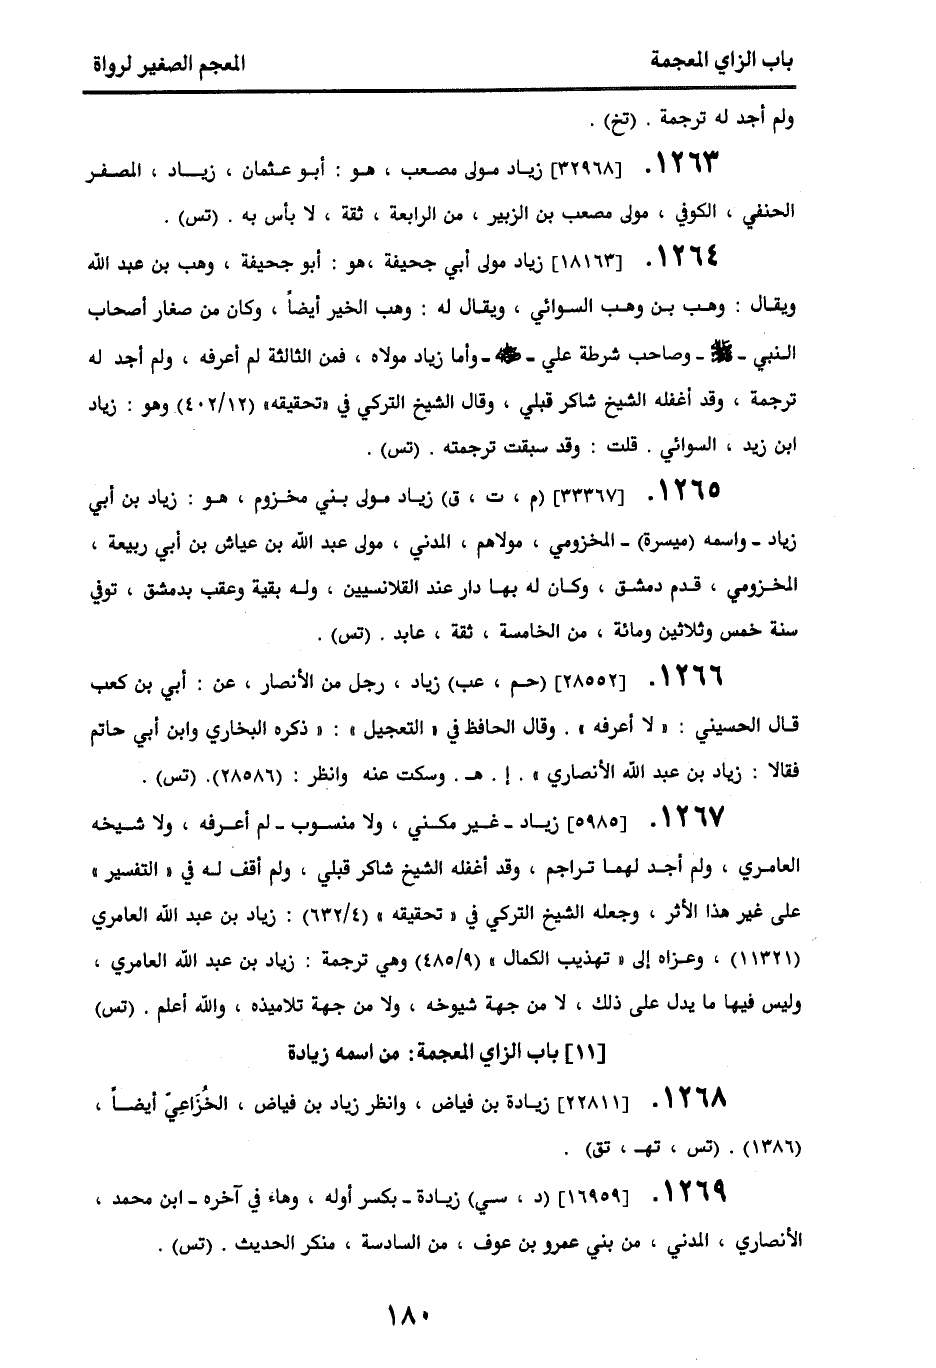 باب الزاي المعجمة
المعجم الصغير لرواة
ولم أجد له ترجمة . (تخ) .
١٢٦٣. [٣٢٩٦٨] زياد مولى مصعب ، هو : أبو عثمان ، زياد ، المصفر
الحنفي ، الكوفي ، مولى مصعب بن الزبير ، من الرابعة ، ثقة ، لا بأس به . (تس) .
١٢٦٤. [١٨١٦٣] زياد مولى أبي جحيفة ،هو : أبو جحيفة ، وهب بن عبد الله
ويقال : وهب بن وهب السوائي ، ويقال له : وهب الخير أيضاً ، وكان من صغار أصحاب
النبي ـ ﷺ ـ وصاحب شرطة علي ـ ـ وأما زياد مولاه ، فمن الثالثة لم أعرفه ، ولم أجد له
ترجمة ، وقد أغفله الشيخ شاكر قبلي ، وقال الشيخ التركي في «تحقيقه» (٤٠٢/١٢) وهو : زياد
ابن زيد ، السوائي . قلت : وقد سبقت ترجمته . (تس) .
١٢٦٥. [٣٣٣٦٧] (م ، ت ، ق) زياد مولى بني مخزوم ، هو : زياد بن أبي
زياد ـ واسمه (ميسرة) ـ المخزومي ، مولاهم ، المدني ، مولى عبد الله بن عياش بن أبي ربيعة ،
المخزومي ، قدم دمشق ، وكان له بها دار عند القلانسيين ، وله بقية وعقب بدمشق ، توفي
سنة خمس وثلاثين ومائة ، من الخامسة ، ثقة ، عابد . (تس) .
١٢٦٦. [٢٨٥٥٢] (حم ، عب) زياد ، رجل من الأنصار ، عن : أبي بن كعب
قال الحسيني : « لا أعرفه » . وقال الحافظ في « التعجيل » : « ذكره البخاري وابن أبي حاتم
فقالا : زياد بن عبد الله الأنصاري » . إ . هـ . وسكت عنه وانظر : (٢٨٥٨٦). (تس) .
١٢٦٧. [٥٩٨٥] زياد ـ غير مكني ، ولا منسوب ـ لم أعرفه ، ولا شيخه
العامري ، ولم أجد لهما تراجم ، وقد أغفله الشيخ شاكر قبلي ، ولم أقف له في « التفسير »
على غير هذا الأثر ، وجعله الشيخ التركي في « تحقيقه » (٦٣٢/٤) : زياد بن عبد الله العامري
(١١٣٢١) ، وعزاه إلى « تهذيب الكمال » (٤٨٥/٩) وهي ترجمة : زياد بن عبد الله العامري ،
وليس فيها ما يدل على ذلك ، لا من جهة شيوخه ، ولا من جهة تلاميذه ، والله أعلم . (تس)
[١١] باب الزاي المعجمة: من اسمه زيادة
١٢٦٨. [٢٢٨١١] زيادة بن فياض ، وانظر زياد بن فياض ، الخُزَاعِيّ أيضاً ،
(١٣٨٦) . (تس ، تهـ ، تق) .
١٢٦٩. [١٦٩٥٩] (د ، سي) زيادة ـ بكسر أوله ، وهاء في آخره ـ ابن محمد ،
الأنصاري ، المدني ، من بني عمرو بن عوف ، من السادسة ، منكر الحديث . (تس) .
١٨٠